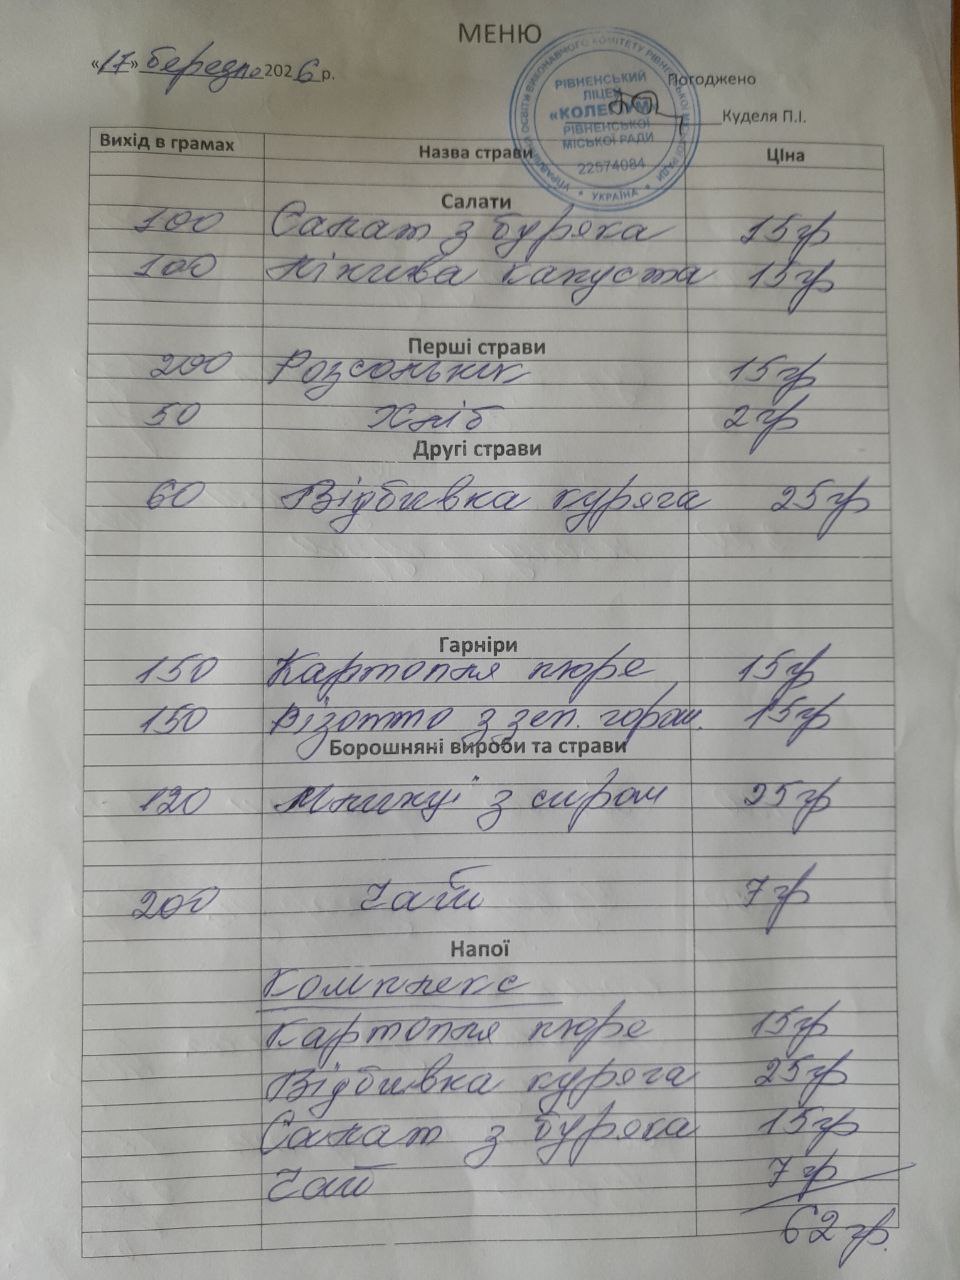 МЕНЮ
«17» березня 2026 р.
Погоджено
Куделя П.І.
УПРАВЛІННЯ ОСВІТИ ВИКОНАВЧОГО КОМІТЕТУ РІВНЕНСЬКОЇ МІСЬКОЇ РАДИ
РІВНЕНСЬКИЙ
ЛІЦЕЙ
«КОЛЕГІУМ»
РІВНЕНСЬКОЇ
МІСЬКОЇ РАДИ
22574084
* УКРАЇНА *
Вихід в грамах Назва страви Ціна
Салати
100 Салат з буряка 15гр
100 Ніжива капуста 15гр
Перші страви
200 Розсольнік 15гр
50 Хліб 2гр
Другі страви
60 Відбивка куряча 25гр
Гарніри
150 Картопля пюре 15гр
150 Різотто з зел. горош. 15гр
Борошняні вироби та страви
120 Млинці з сиром 25гр
200 Чай 7гр
Напої
Комплекс
Картопля пюре 15гр
Відбивка куряча 25гр
Салат з буряка 15гр
Чай 7гр
62гр.